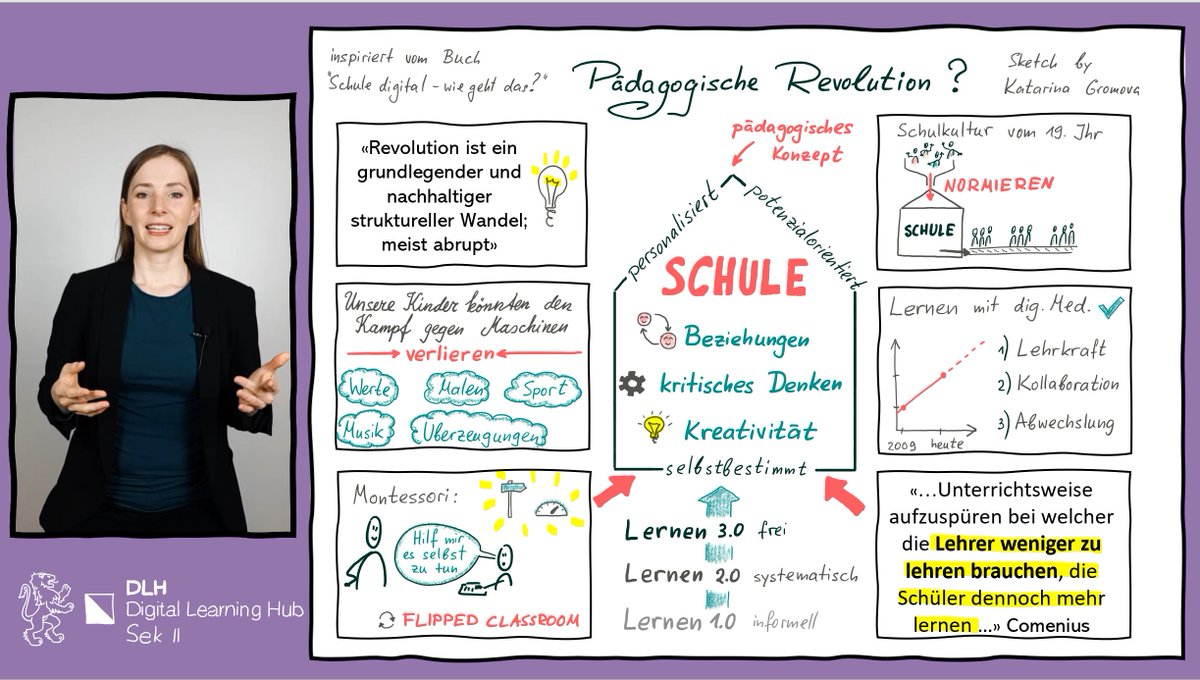 inspiriert vom Buch
"Schule digital - wie geht das?"
Pädagogische Revolution ?
Sketch by
Katarina Gromova
«Revolution ist ein
grundlegender und
nachhaltiger
struktureller Wandel;
meist abrupt»
Unsere Kinder könnten den
Kampf gegen Maschinen
verlieren
Werte
Malen
Sport
Musik
Überzeugungen
Montessori:
Hilf mir
es selbst
zu tun
FLIPPED CLASSROOM
pädagogisches
Konzept
personalisiert
potenzialorientiert
SCHULE
Beziehungen
kritisches Denken
Kreativität
selbstbestimmt
Lernen 3.0 frei
Lernen 2.0 systematisch
Lernen 1.0 informell
Schulkultur vom 19. Jhr
NORMIEREN
SCHULE
Lernen mit dig. Med.
1) Lehrkraft
2) Kollaboration
3) Abwechslung
2009 heute
«...Unterrichtsweise
aufzuspüren bei welcher
die Lehrer weniger zu
lehren brauchen, die
Schüler dennoch mehr
lernen ...» Comenius
DLH
Digital Learning Hub
Sek II